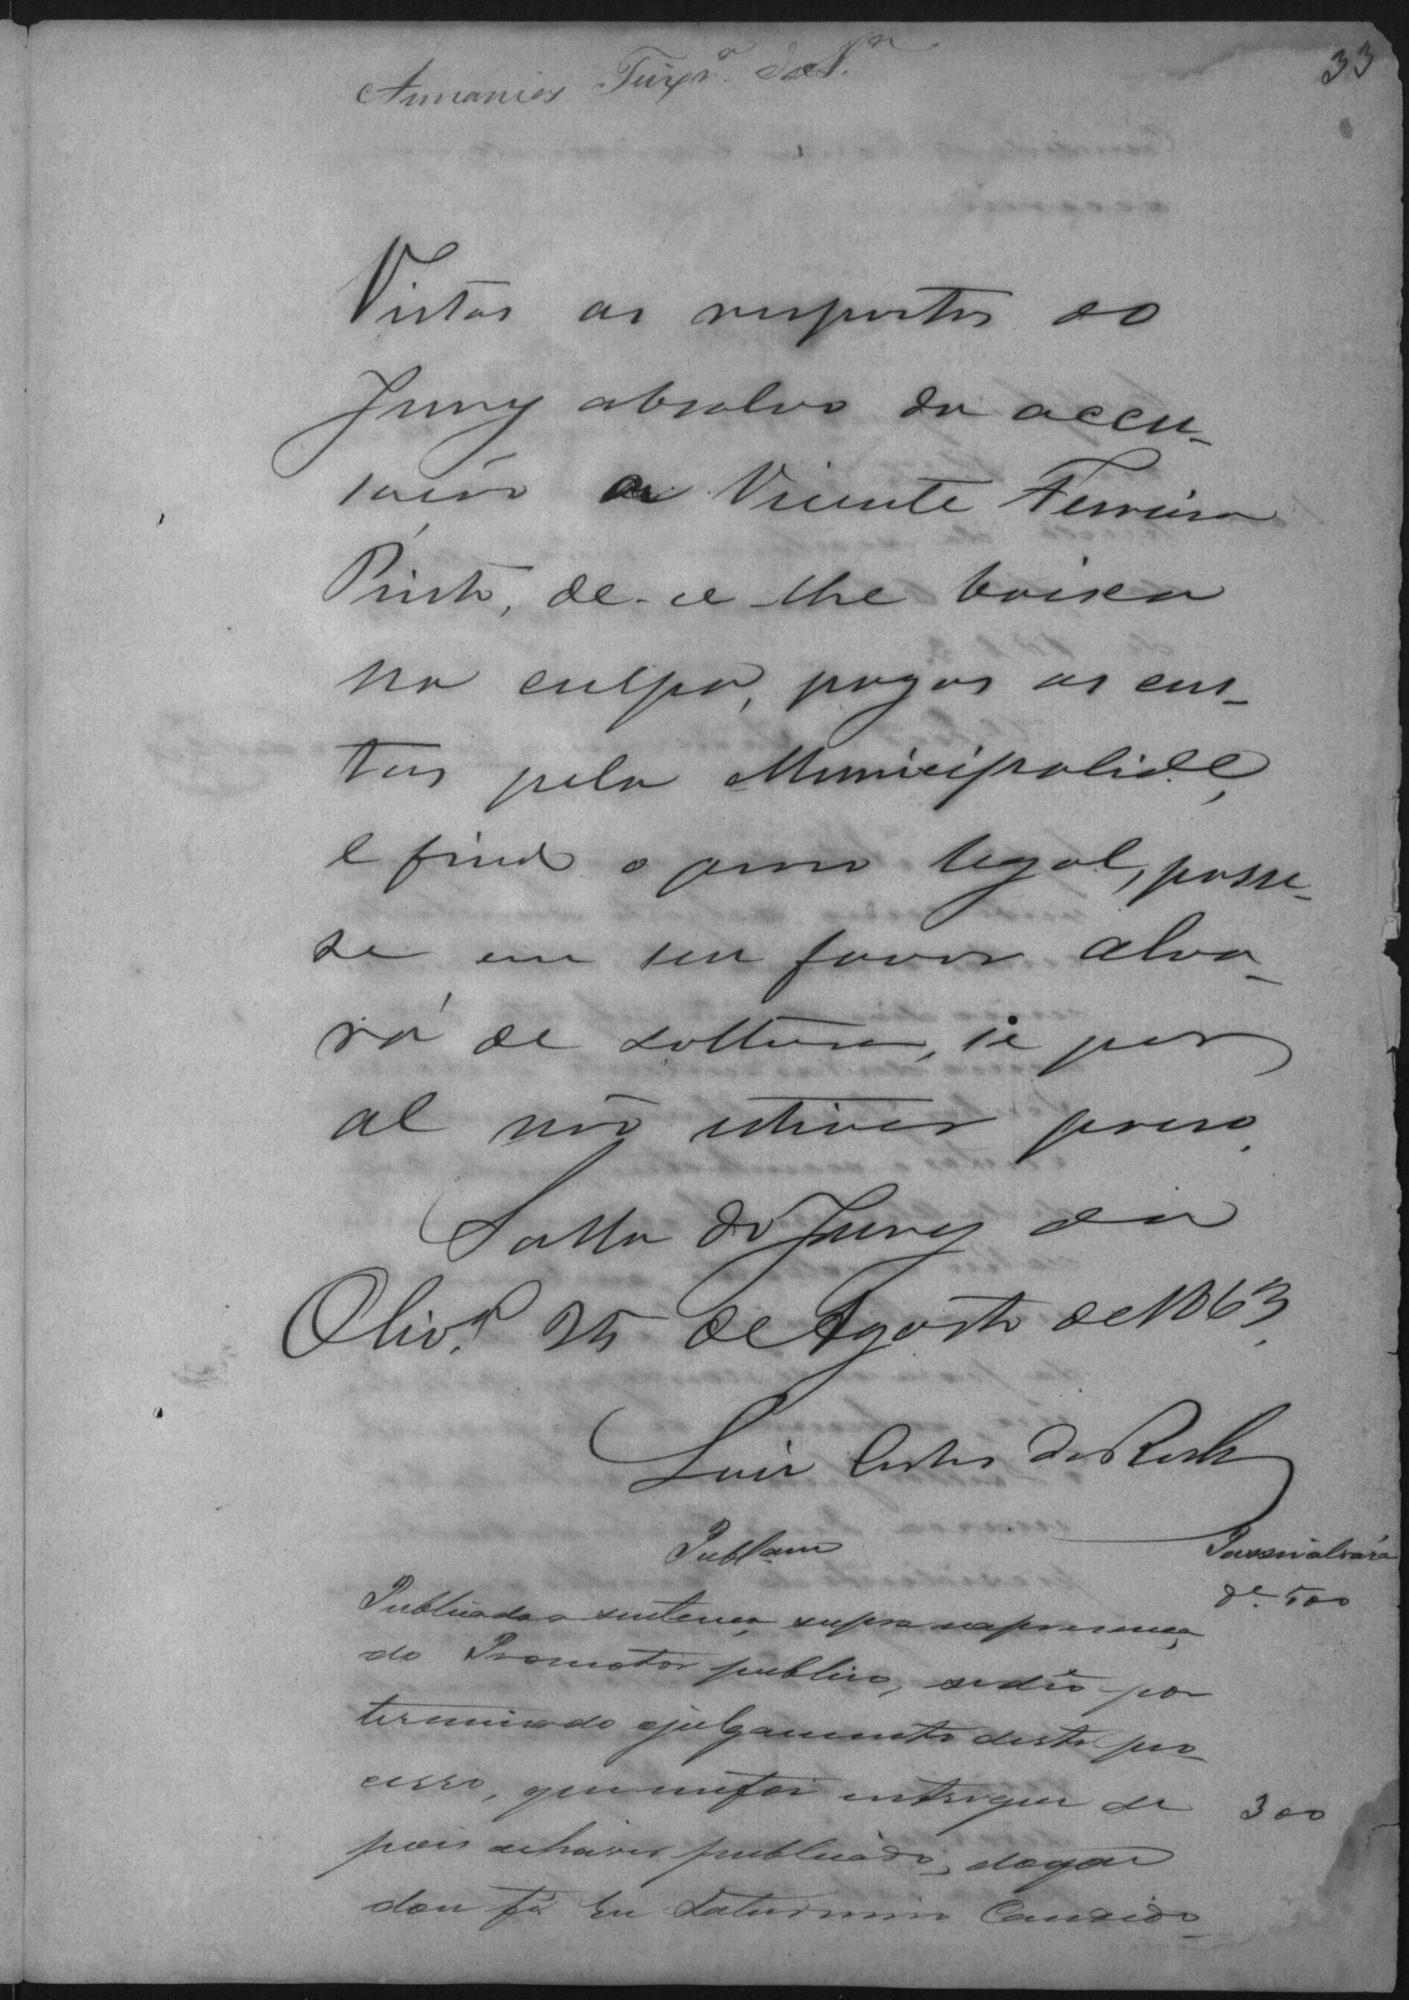 33
Vistas as respostas do
Jury absolvo da accu-
sação a Vicente Ferreira
Pinto, de-se-lhe baixa
na culpa, pagas as cus-
tas pela Municipalid.e,
e findo o praso legal, passe-
se em seu favor alva-
rá de soltura, se por
al não estiver preso.
Salla do Jury da
Oliv.ra 25 de Agosto de 1863.
Luis Carlos da Rocha
Publ.am
Passei alvará
de 500
Publicada a sentença supra na presença
do Promotor publico, se deo por
terminado o julgamento deste pro-
cesso, que me foi entregue de
300
pois de haver publicado, do que
dou fé. Eu Saturnino Candido